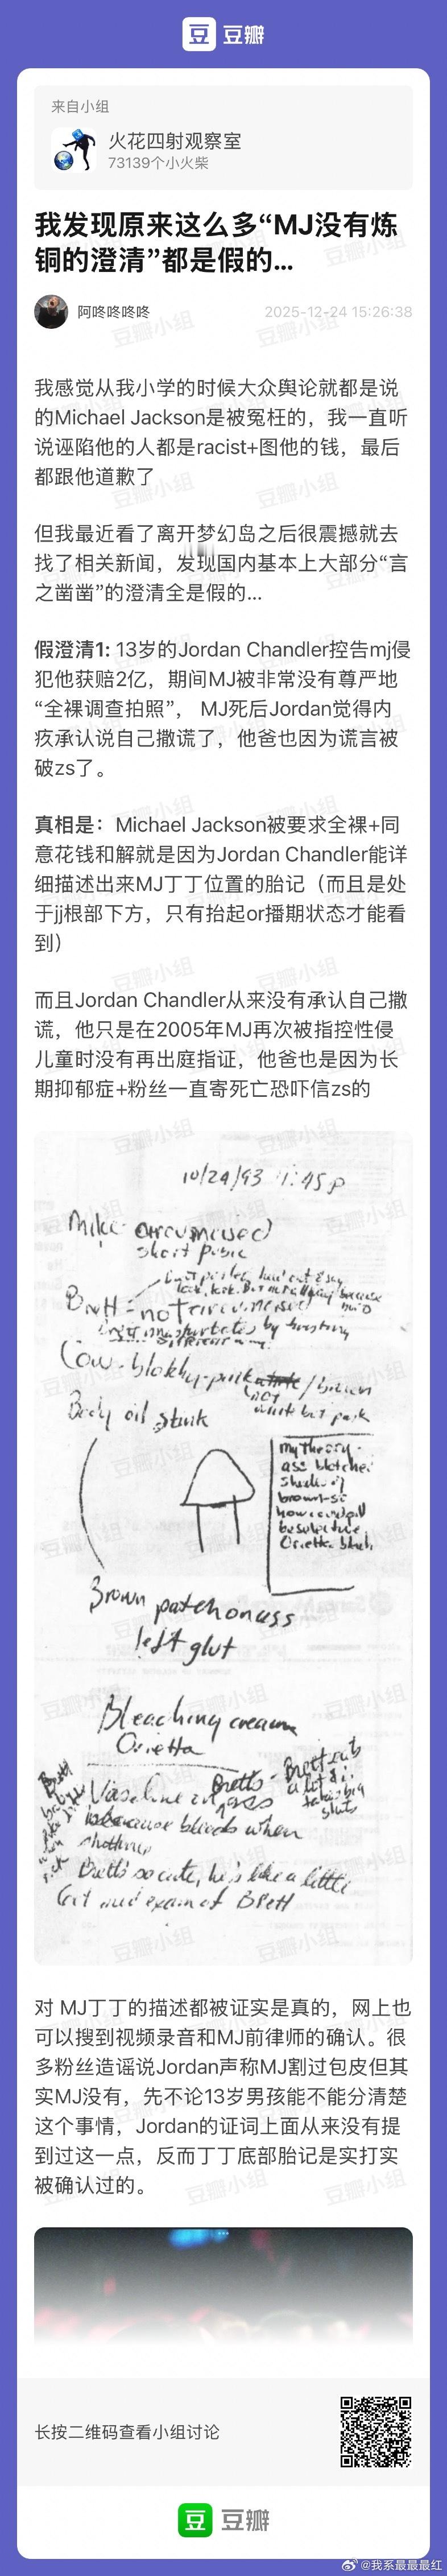 豆 豆瓣
来自小组
火花四射观察室
73139个小火柴
我发现原来这么多“MJ没有炼
铜的澄清”都是假的...
阿咚咚咚咚
2025-12-24 15:26:38
我感觉从我小学的时候大众舆论就都是说
的Michael Jackson是被冤枉的，我一直听
说诬陷他的人都是racist+图他的钱，最后
都跟他道歉了
但我最近看了离开梦幻岛之后很震撼就去
找了相关新闻，发现国内基本上大部分“言
之凿凿”的澄清全是假的...
假澄清1: 13岁的Jordan Chandler控告mj侵
犯他获赔2亿，期间MJ被非常没有尊严地
“全裸调查拍照”， MJ死后Jordan觉得内
疚承认说自己撒谎了，他爸也因为谎言被
破zs了。
真相是：Michael Jackson被要求全裸+同
意花钱和解就是因为Jordan Chandler能详
细描述出来MJ丁丁位置的胎记（而且是处
于jj根部下方，只有抬起or播期状态才能看
到）
而且Jordan Chandler从来没有承认自己撒
谎，他只是在2005年MJ再次被指控性侵
儿童时没有再出庭指证，他爸也是因为长
期抑郁症+粉丝一直寄死亡恐吓信zs的
10/24/93 11:45p
Mike circumcised
short pubic
Brett = not circumcised
Body oil stink
my theory
Brown patch on ass
left glut
Bleaching cream
Orietta
Brett's so cute, he's like a little
对 MJ丁丁的描述都被证实是真的，网上也
可以搜到视频录音和MJ前律师的确认。很
多粉丝造谣说Jordan声称MJ割过包皮但其
实MJ没有，先不论13岁男孩能不能分清楚
这个事情，Jordan的证词上面从来没有提
到过这一点，反而丁丁底部胎记是实打实
被确认过的。
长按二维码查看小组讨论
豆 豆瓣
@我系最最最红